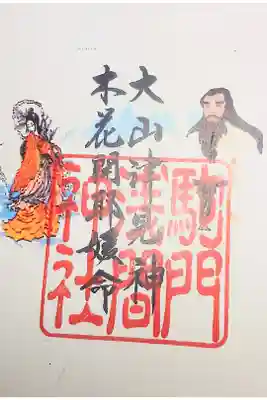 大山津見神
木花開耶姫命
駒門
間
神社